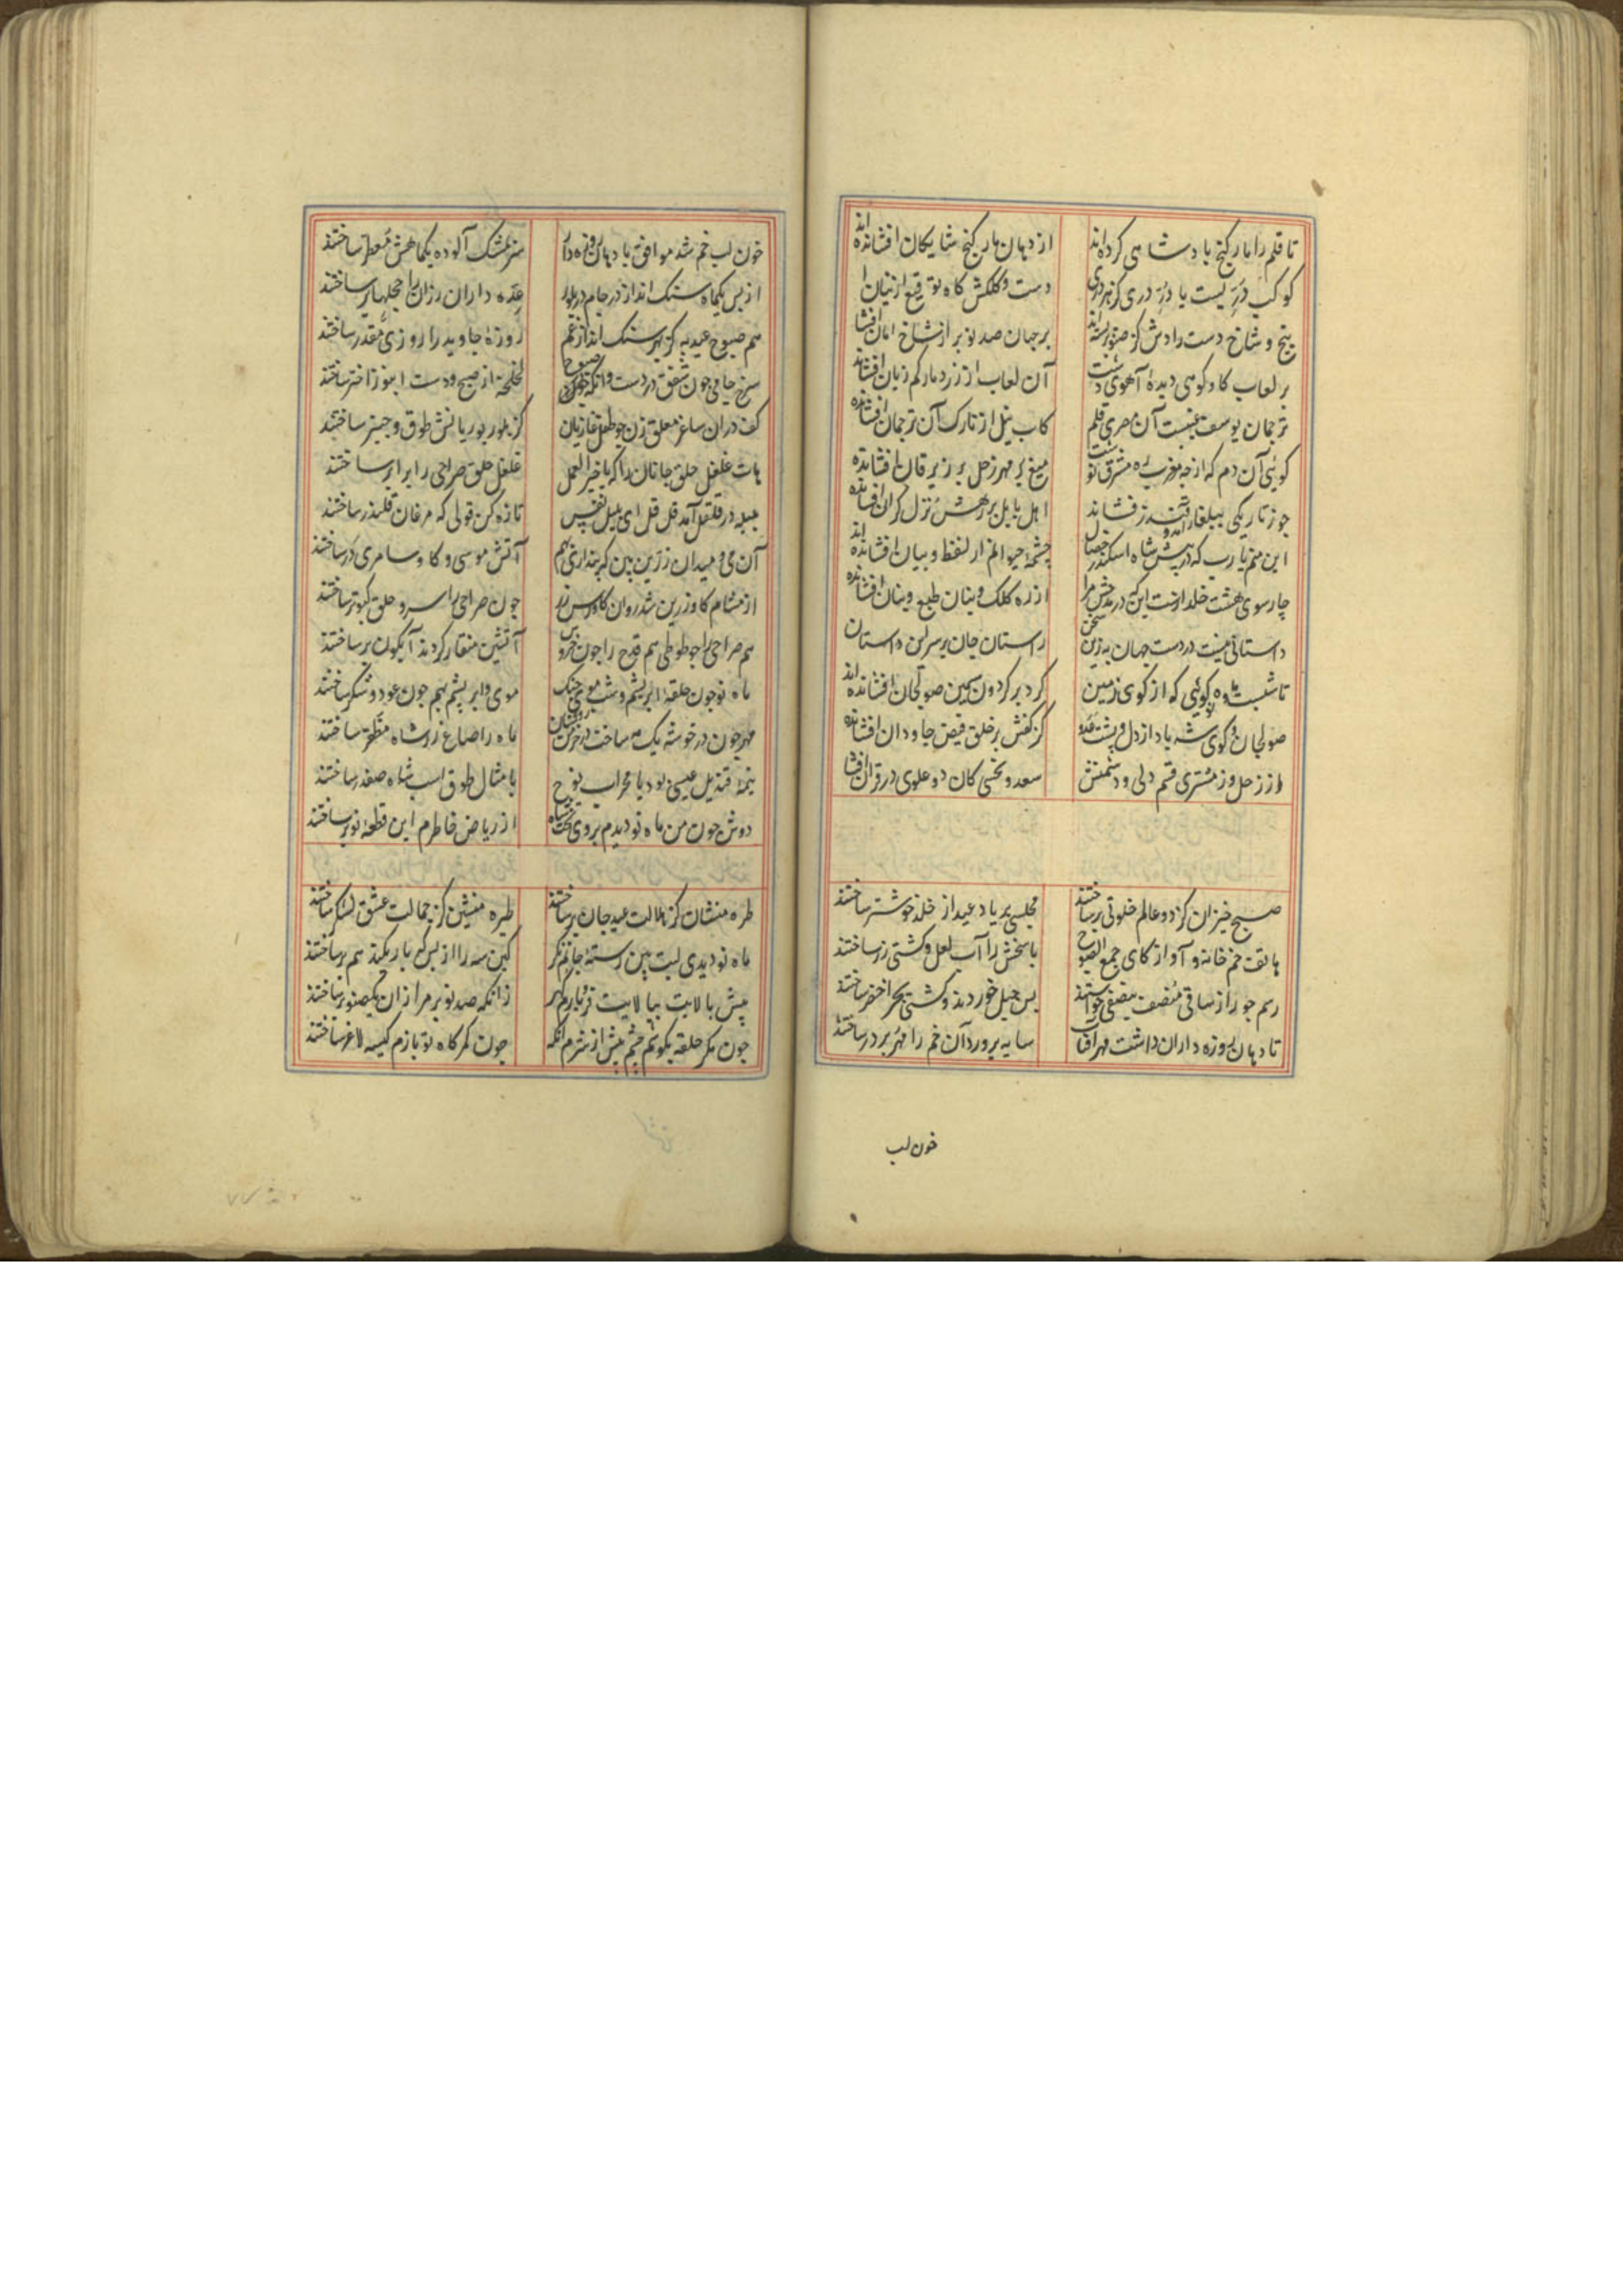 تا قلم را مار گنج پادشاهی کرده‌اند از دهان مار گنج شایگان افشانده‌اند
کوکب دری است یا در دری کز هر دری دست و کلکش گاه توقیع از بنان
پنج شاخ دست رادش کز صنوبر رسته‌اند بر جهان صد نوبر از شاخ امان افشانده‌اند
بر لعاب گاو کوهی دیدهٔ آهوی دشت آن لعاب از زرد مار کم زیان افشانده
ترجمان یوسف غیبست آن مصری قلم کاب نیل از تارک آن ترجمان افشانده
گوئی آن دم کز چه مغرب مشرق نوشت میغ بر مهر و زحل بر زبرقان افشانده
اهل بابل بر رهش نزل گران افشانده
این منم یا رب که در پیش شاه اسکندر خصال چشمهٔ حیوانم از لفظ و بیان افشانده‌اند
چار سوی هشت خلد است این که در مدحش مرا از ره کلک و بنان طبع و بنان افشانده
داستانی نیست در دست جهان به زین سخن راستان جان بر سر این داستان
تا شبست و ماه گوئی که از گوی زمین گرد بر گردون سیمین صولجان افشانده‌اند
صولجان و گوی شه باد از دل و پشت عدو کز کفش بر خلق فیض جاودان افشانده
از زحل وز مشتری قسم ولی و دشمنش سعد و نحسی کان دو علوی در قران
صبح خیزان کز دو عالم خلوتی برساختند مجلسی بر یاد عید از خلد خوشتر ساختند
هاتف خمخانه داد آواز کای جمع الصبوح پاسخش را آب لعل و کشتی زر ساختند
رسم جور از ساقی منصف بنصفی خواستند بس حیل خوردند و کشتی بحر اخضر ساختند
تا دهان روزه داران داشت مهر آفتاب سایه پرورد آن خم را مهر بر در ساختند
خون لب
خون لب خم شد موافق با دهان روزه‌دار سر بمشک آلوده یکماهش معطر ساختند
از پس یکماه سنگ انداز در جام بلور عده داران رزان را حجلها بر ساختند
هم صبوح عید به کز بهر سنگ انداز عمر روزهٔ جاوید را روزی مقدر ساختند
سرخ جامی چون شفق در دست وانگه در صبوح لخلخه از صبح و دست انبوی از اختر ساختند
کف در آن ساغر معلق زن چو طفل غازیان کز بلور بوریانش طوق و چنبر ساختند
هات غلغل حلق جانان را که یا خیر العمل غلغل حلق صراحی را برابر ساختند
بلبله در قلقل آمد قل قل ای بلبل نفس تازه کن قولی که مرغان قلندر ساختند
آن می و میدان زرین بین که پنداری بهم آتش موسی و گاو سامری در ساختند
از مشام گاو زرین شد روان گاورس زر چون صراحی را سر و حلق کبوتر ساختند
هم صراحی را چو طوطی هم قدح را چون خروس آتشین منقار کردند آبگون پر ساختند
ماه نو چون حلقهٔ ابریشم و شب موی چنگ موی و ابریشم بهم چون عود و شکر ساختند
مهر چون در خوشه یک مه ساخت خرمن ماه را صاع زر شاه مظفر ساختند
نیمهٔ قندیل عیسی بود یا محراب نوح یا مثال طوق اسب شاه صفدر ساختند
دوش چون من ماه نو دیدم بروی تخت شاه از ریاض خاطرم این قطعه نوبر ساختند
طره منشان کز هلالت عید جان برساختند طیره منشین کز جمالت عشق لشکر ساختند
ماه نو دیدی لبت بین رستهٔ جانم نگر کین سه را از بس که باریکند همبر ساختند
پیش بالایت ببالایت فرو بارم گهر زانکه صد نوبر مرا زان یک صنوبر ساختند
چون کمر حلقه بگوشم چشم پیش از شرم آنکه چون کمرگاه تو بازم کیسه لاغر ساختند